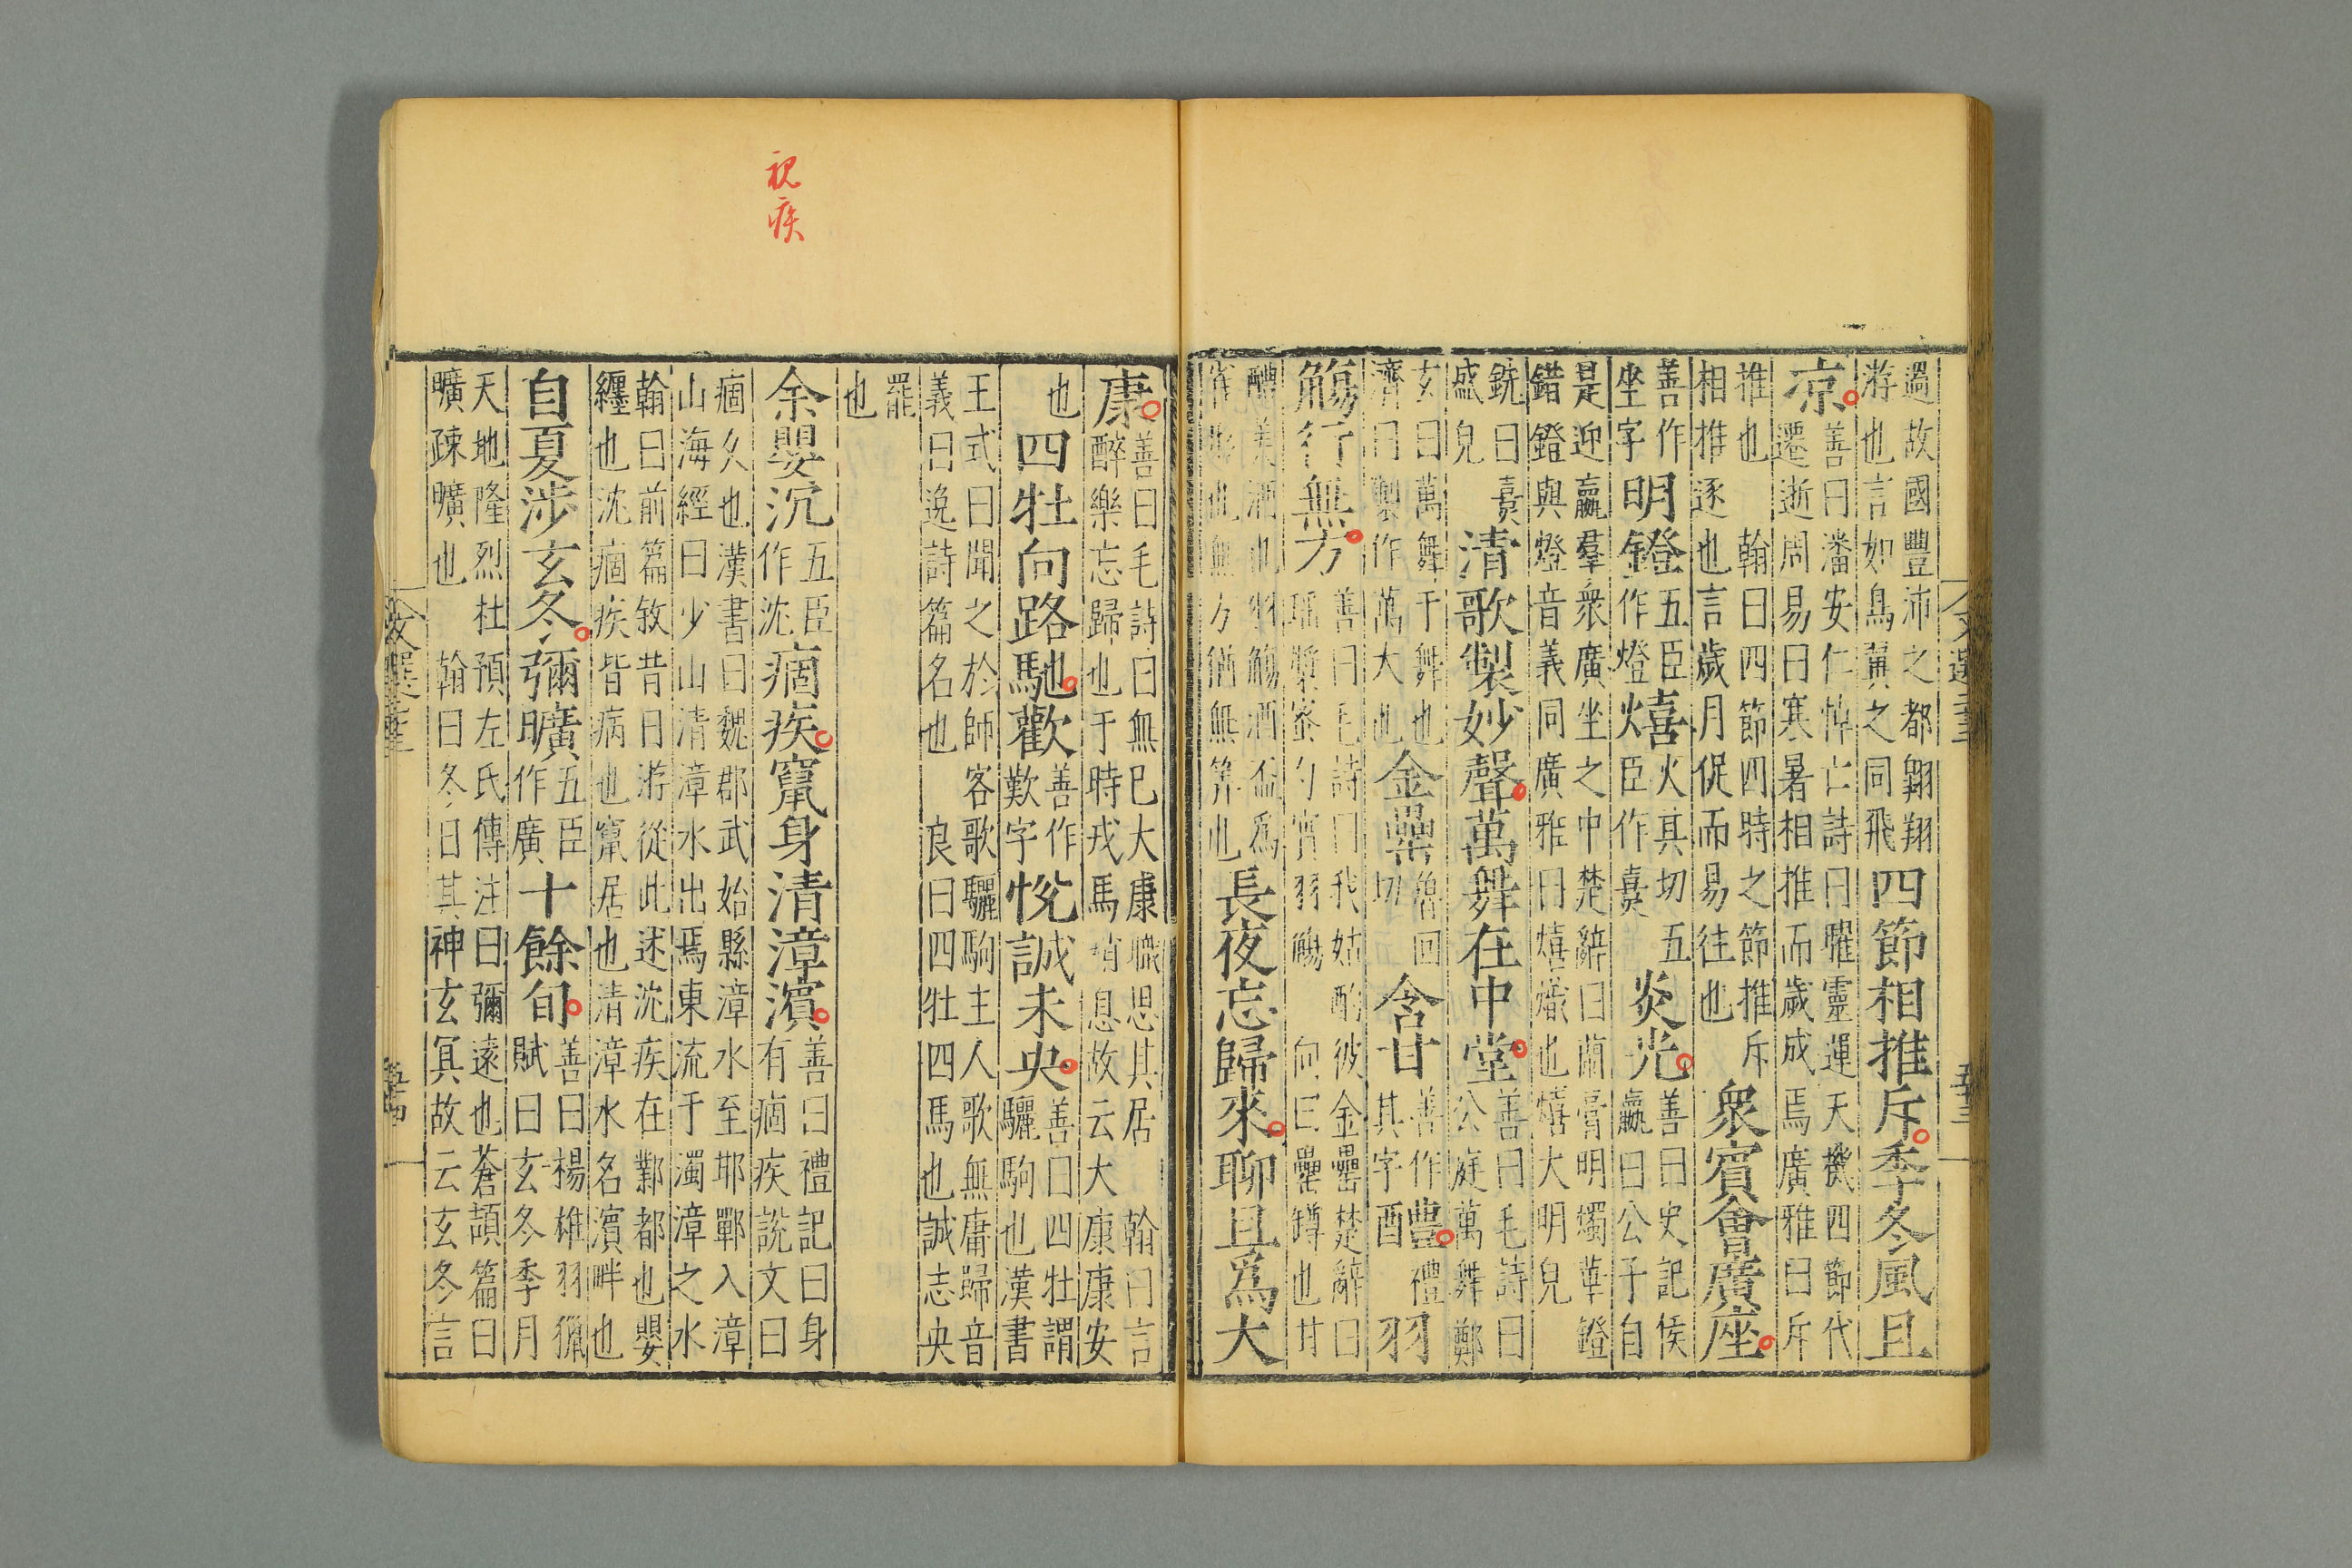 過故國豐沛之都翱翔
游也言如鳥翼之同飛
四節相推斥季冬風且
涼
善曰潘安仁悼亡詩曰曜靈運天機四節代
遷逝周易曰寒暑相推而歲成焉廣雅曰斥
推也翰曰四節四時之節推斥
相推逐也言歲月促而易往也
衆賓會廣座
善作
坐字
明鐙
五臣
作燈
熺
火其切五
臣作熹
炎光
善曰史記侯
嬴曰公子自
是迎嬴羣衆廣坐之中楚辭曰蘭膏明燭華鐙
錯鐙與燈音義同廣雅曰熺熾也熺大明皃
銑曰熹
盛皃
清歌製妙聲萬舞在中堂
善曰毛詩曰
公庭萬舞鄭
玄曰萬舞干舞也
濟曰製作萬大也
金罍
魯回
切
含甘
善作
其字
醴
禮
酉
羽
觴行無方
善曰毛詩曰我姑酌彼金罍楚辭曰
瑤漿蜜勺實羽觴向曰罍罇也甘
醴美酒也羽觴酒盃爲
雀形也無方猶無筭也
長夜忘歸來聊且爲大
康
善曰毛詩曰無已大康職思其居翰曰言
醉樂忘歸也于時戎馬稍息故云大康康安
也
四牡向路馳歡
善作
歎字
悅誠未央
善曰四牡謂
驪駒也漢書
王式曰聞之於師客歌驪駒主人歌無庸歸音
義曰逸詩篇名也良曰四牡四馬也誠志央
罷
也
余嬰沉
五臣
作沈
痼疾竄身清漳濱
善曰禮記曰身
有痼疾說文曰
痼久也漢書曰魏郡武始縣漳水至邯鄲入漳
山海經曰少山清漳水出焉東流于濁漳之水
翰曰前篇敘昔日游從此述沈疾在鄴都也嬰
纏也沈痼疾皆病也竄居也清漳水名濱畔也
自夏涉玄冬彌曠
五臣
作廣
十餘旬
善曰揚雄羽獵
賦曰玄冬季月
天地隆烈杜預左氏傳注曰彌遠也蒼頡篇曰
曠疎曠也翰曰冬日其神玄冥故云玄冬言